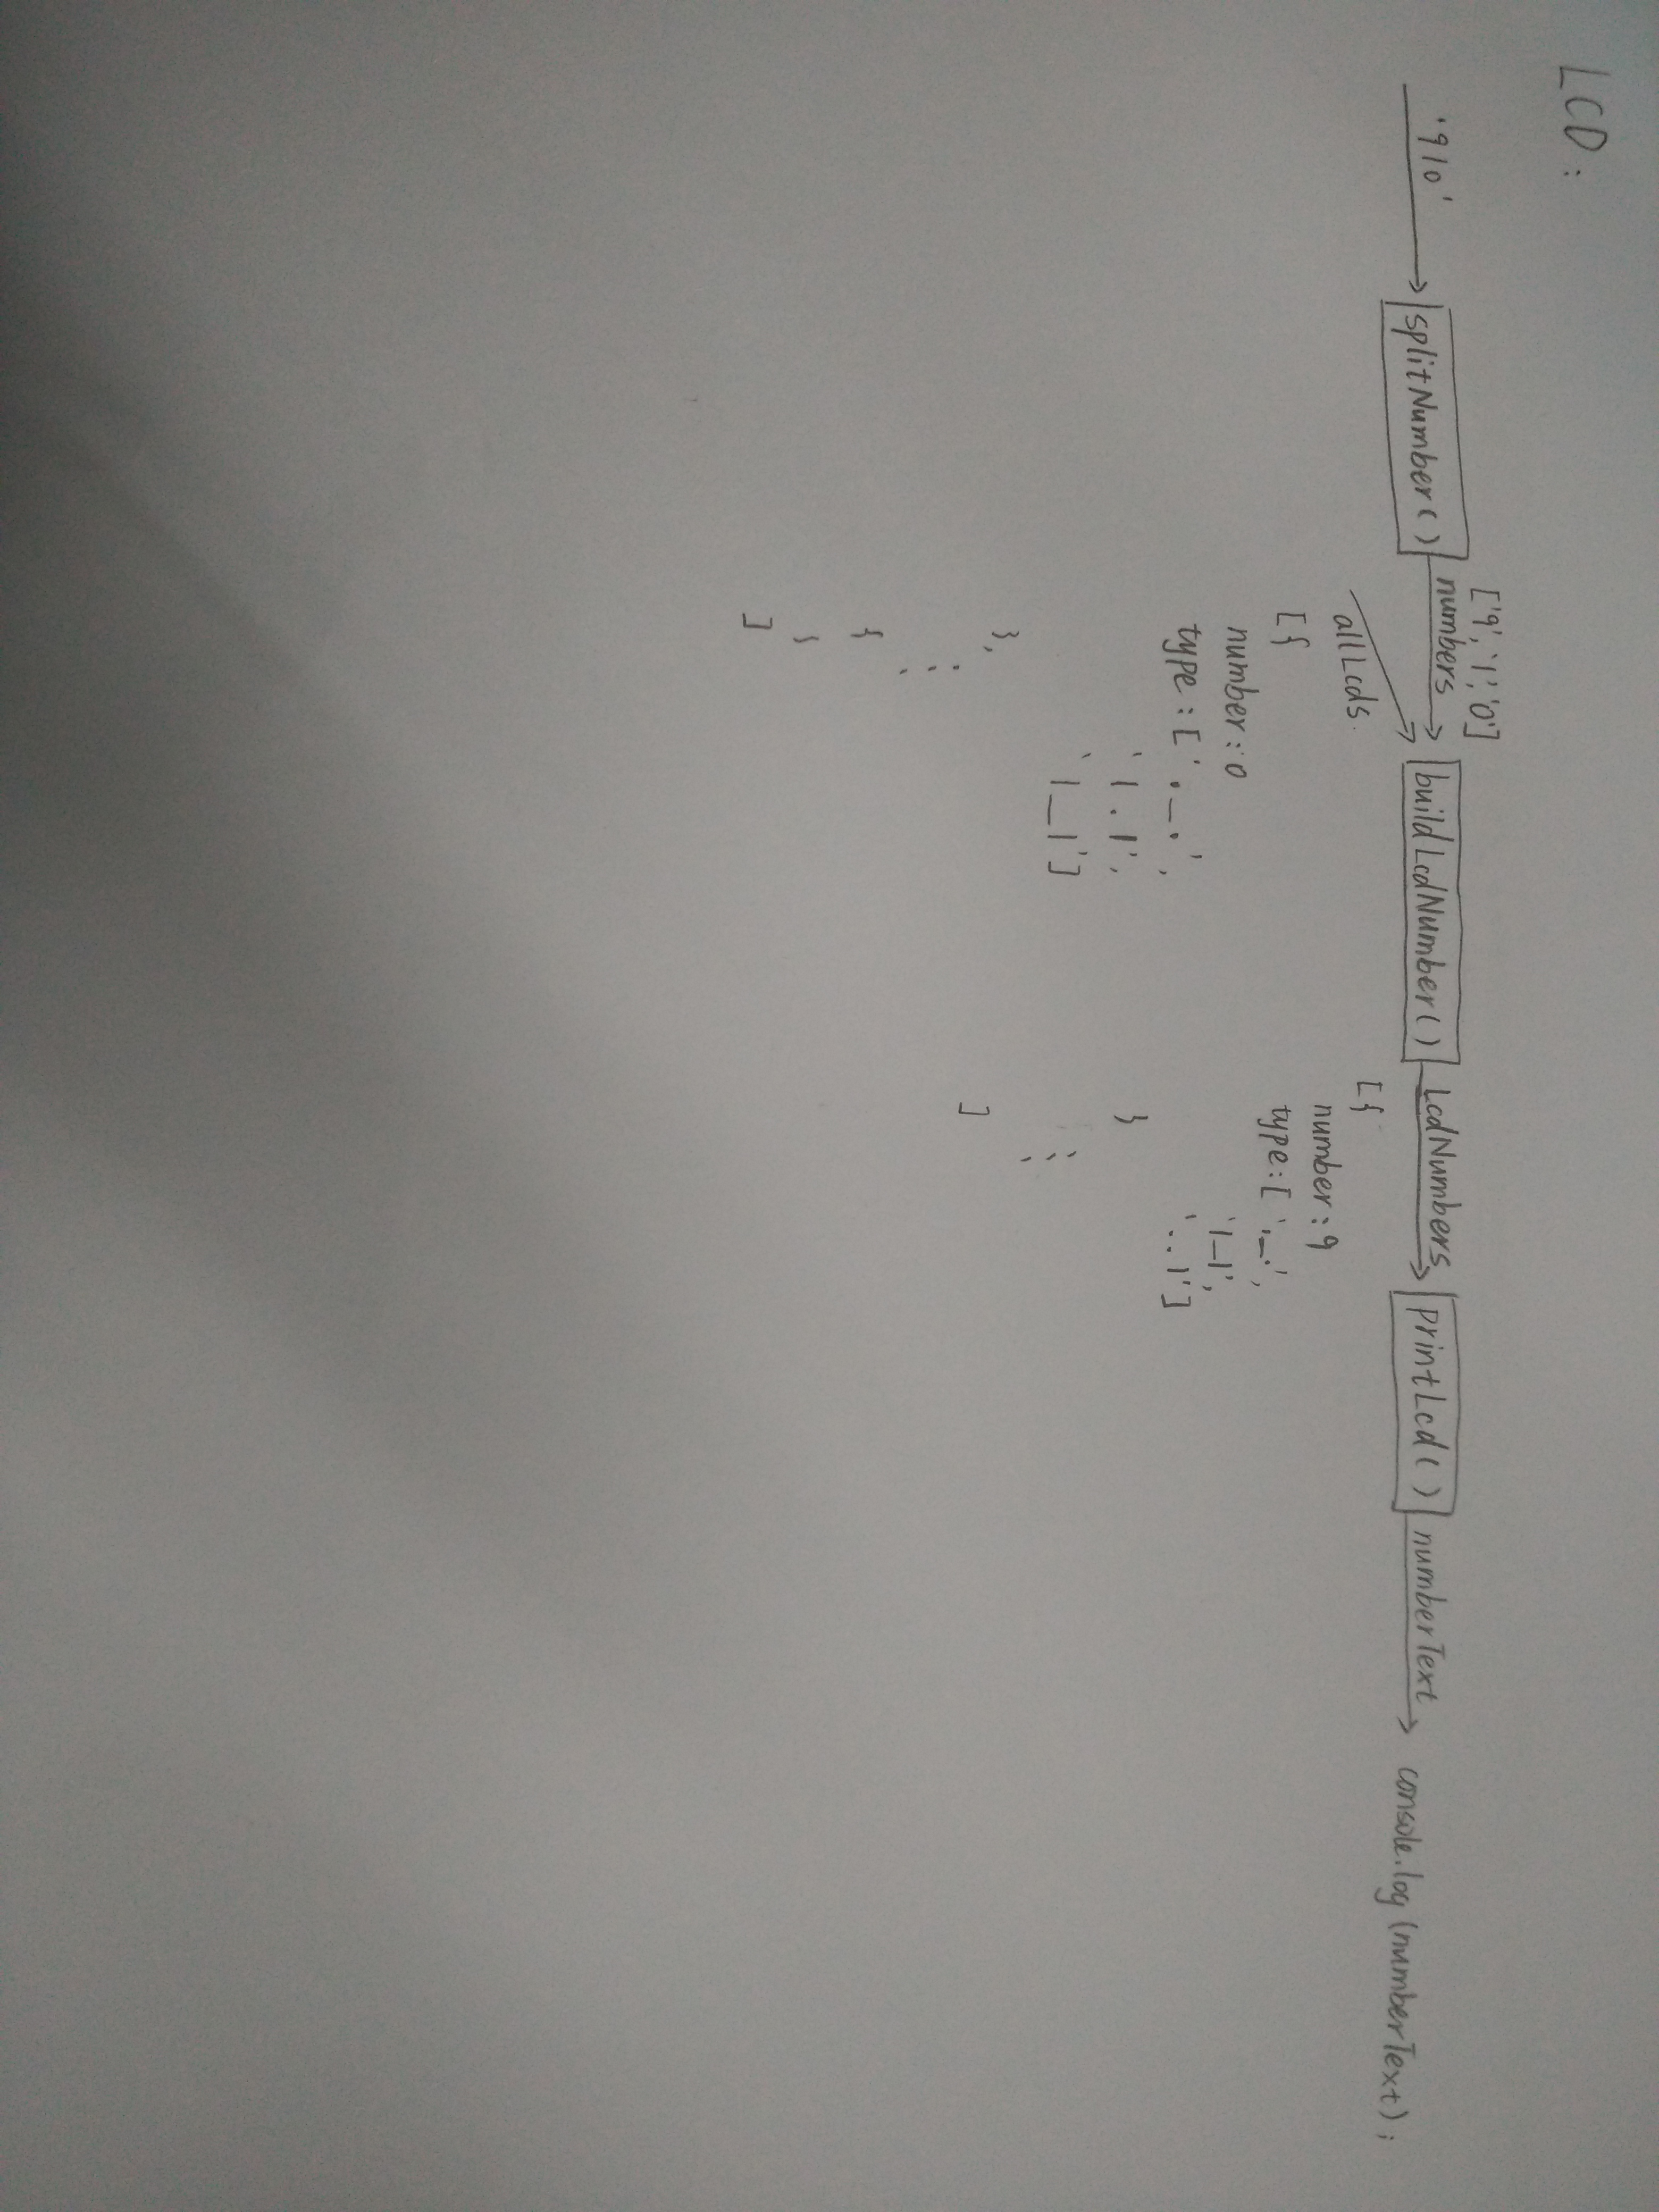 LCD:
['9', '1', '0']
'910' splitNumber() numbers buildLcdNumber() LcdNumbers printLcd() numberText console.log(numberText);
allLcds
[{
number:0
type:['._.',
'|.|',
'|_|']
},
⋮
{
}
]
[{
number:9
type:['._.',
'|_|',
'..|']
}
⋮
]